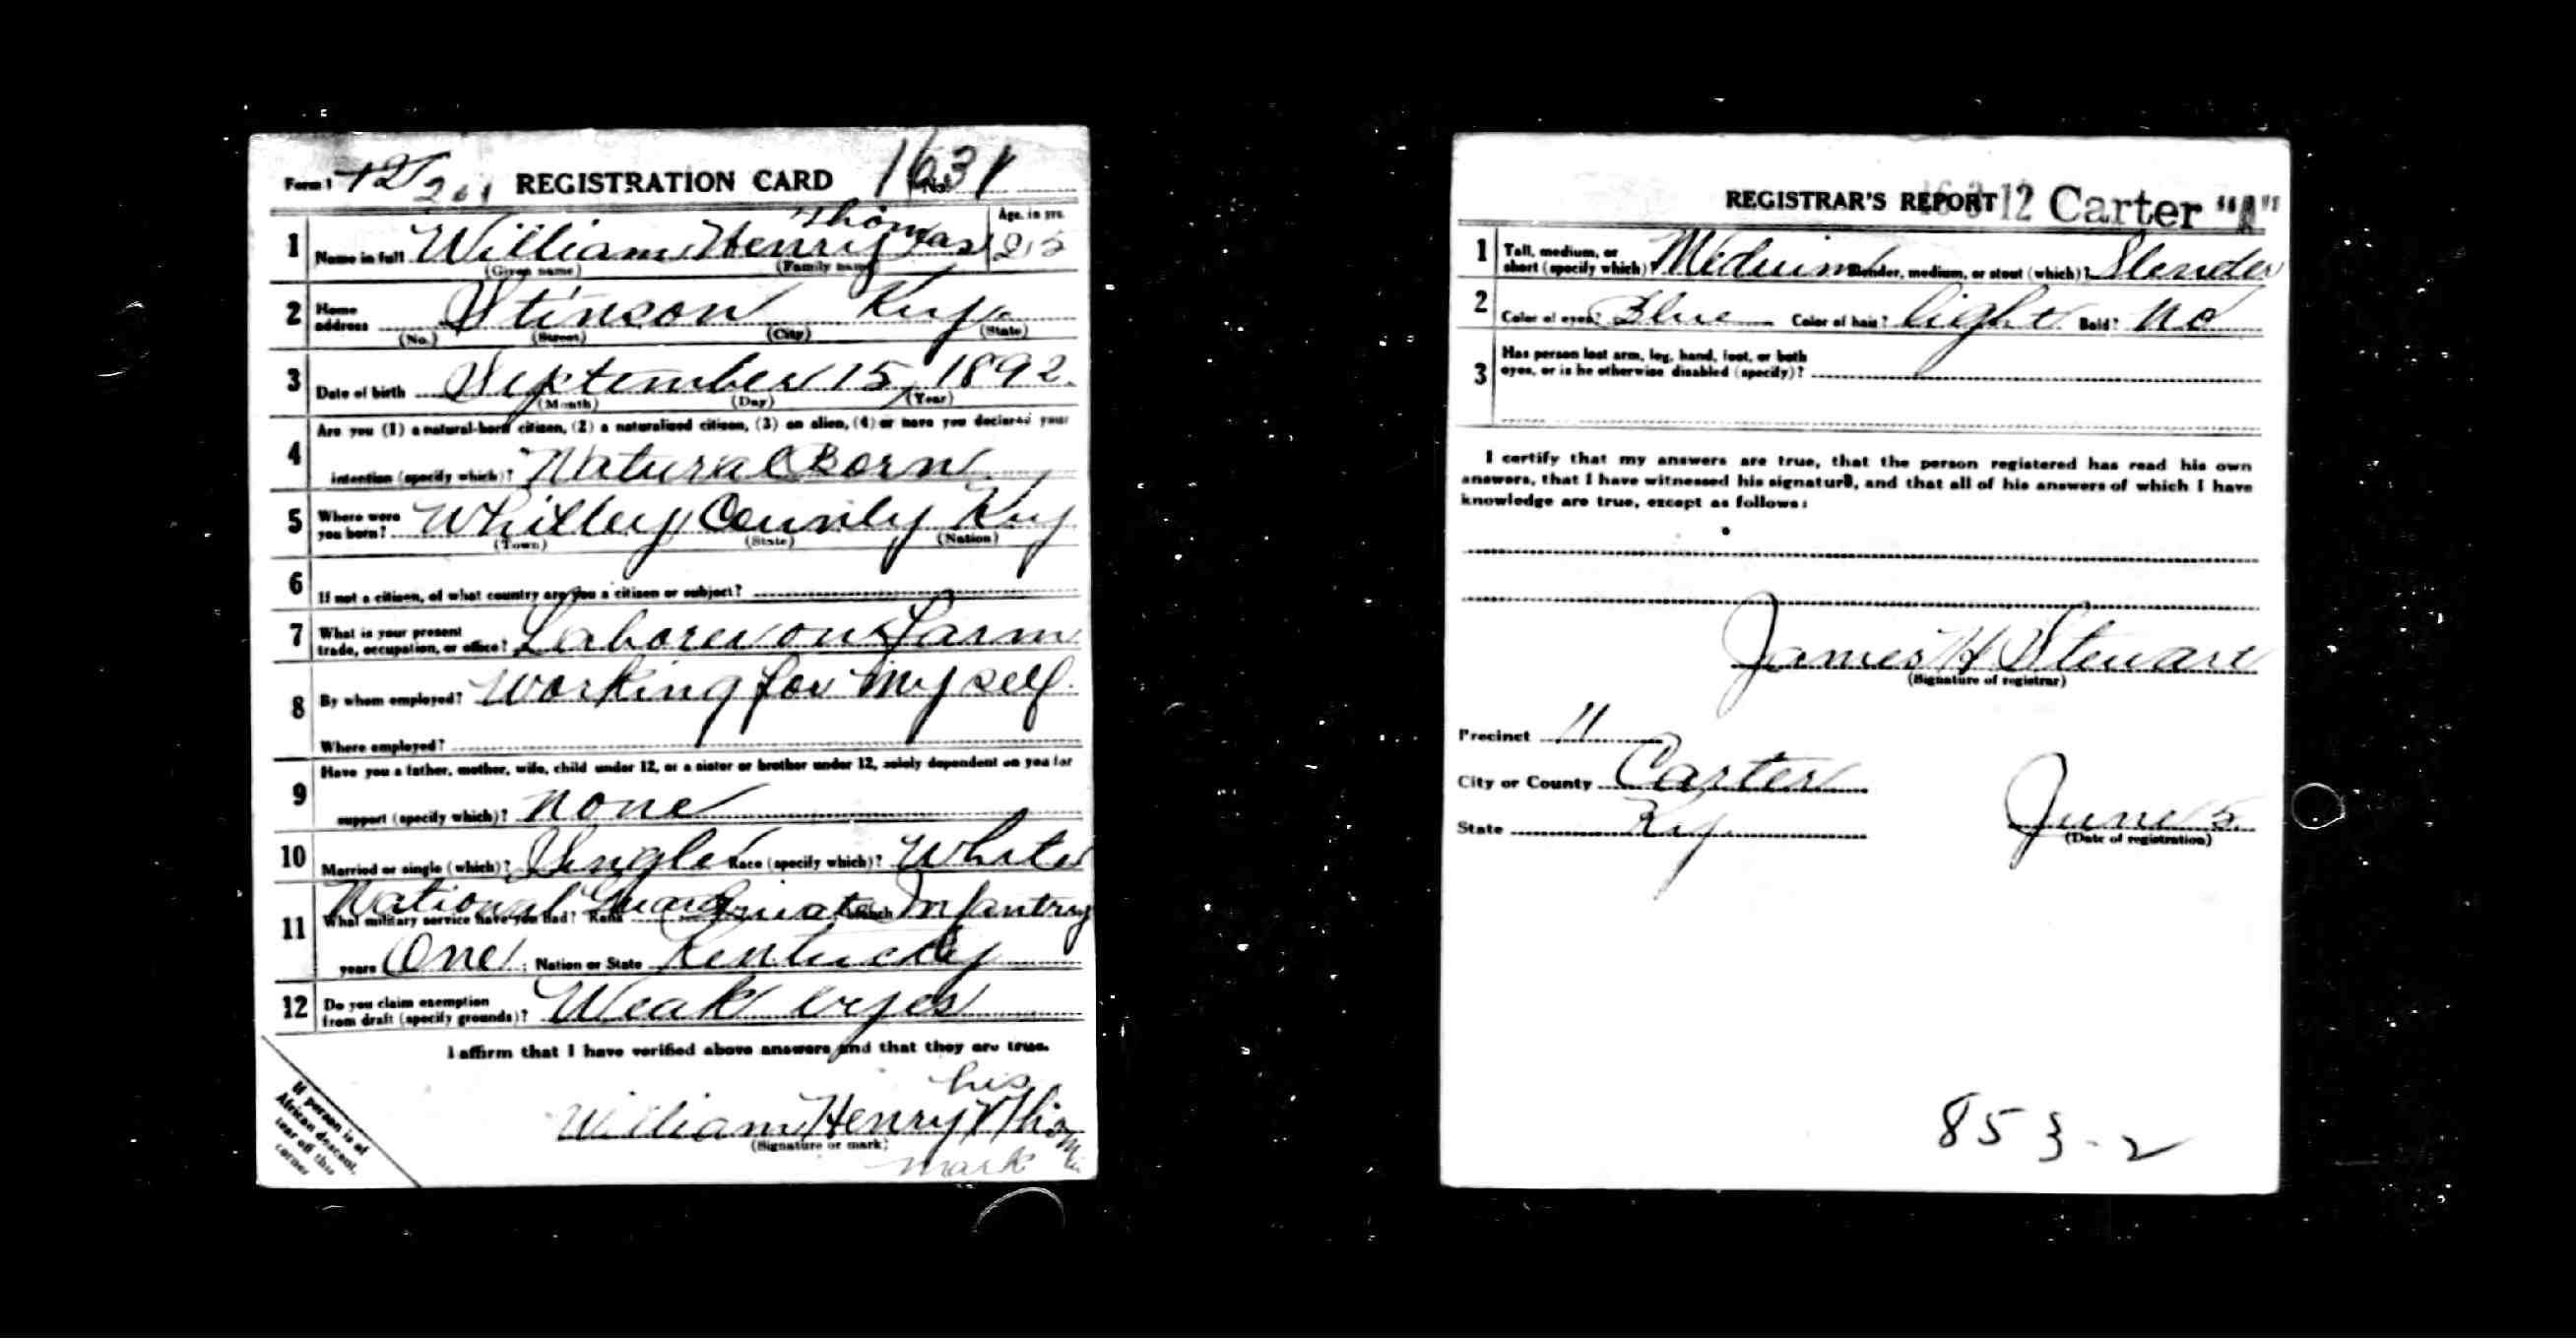 Form 1 REGISTRATION CARD No. 1631
1 Name in full William Henry Thomas Age, in yrs.
(Given name) (Family name)
2 Home address Stinson Ky.
(No.) (Street) (City) (State)
3 Date of birth September 15, 1892.
(Month) (Day) (Year)
4 Are you (1) a natural-born citizen, (2) a naturalized citizen, (3) an alien, (4) or have you declared your
intention (specify which)? Natural Born
5 Where were you born? Whitley County Ky
(Town) (State) (Nation)
6 If not a citizen, of what country are you a citizen or subject?
7 What is your present trade, occupation, or office? Laborer on Farm
8 By whom employed? Working for My self.
Where employed?
9 Have you a father, mother, wife, child under 12, or a sister or brother under 12, solely dependent on you for
support (specify which)? None
10 Married or single (which)? Single Race (specify which)? White
11 What military service have you had? Rank National Guard Private branch Infantry
years One ; Nation or State Kentucky
12 Do you claim exemption from draft (specify grounds)? Weak eyes
I affirm that I have verified above answers and that they are true.
his
William Henry X Thomas
(Signature or mark)
mark
If person is of
African descent,
tear off this
corner
REGISTRAR'S REPORT 12 Carter "A"
1 Tall, medium, or short (specify which)? Meduim Slender, medium, or stout (which)? Slender
2 Color of eyes? Blue Color of hair? light Bald? No
3 Has person lost arm, leg, hand, foot, or both
eyes, or is he otherwise disabled (specify)?
I certify that my answers are true, that the person registered has read his own
answers, that I have witnessed his signature, and that all of his answers of which I have
knowledge are true, except as follows:
James H Stewart
(Signature of registrar)
Precinct 11
City or County Carter
State Ky.
June 5
(Date of registration)
853-2